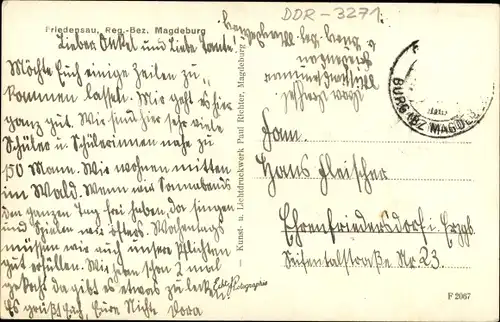 DDR-3271
Friedensau, Reg.-Bez. Magdeburg
Lieber Onkel und Liebe Tante.
Möchte Euch einige Zeilen zu
kommen lassen. Mir geht es hier
ganz gut. Wir sind hier sehr viele
Schüler u. Schülerinnen nahe zu
150 Mann. Wir wohnen mitten
im Wald. Wenn wir Sonnabends
den ganzen Tag frei haben, da singen
und spielen wir öfters. Wochentags
müssen wir auch unsere Pflichten
gut erfüllen. Wir haben schon 2 mal
da gibt es etwas zu
Es grüßt Euch, Eure Nichte Dora
Echte Photographie
Kunst- u. Lichtdruckwerk Paul Richter, Magdeburg
BURG (BZ MAGDEB
Fam.
Hans Fleischer
Ehrenfriedersdorf i. Erzgb.
Seifentalstraße Nr. 23.
F 2067